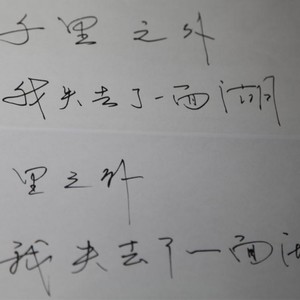 千里之外
我失去了一面湖
里之外
我失去了一面湖